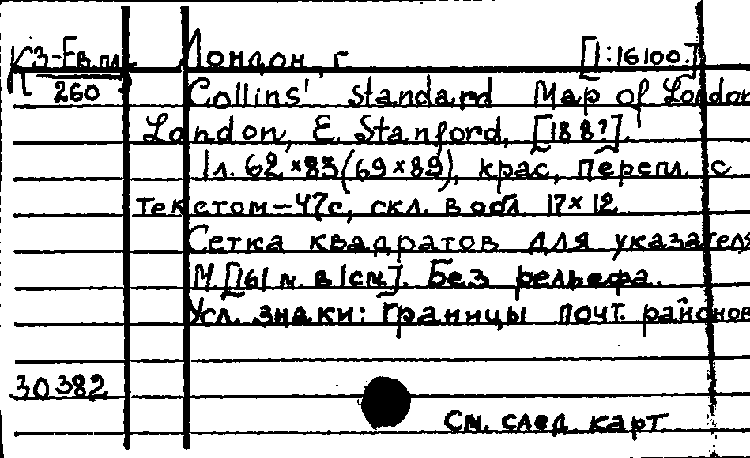 К3-Ев.пл. Лондон, г. [1:16100.]
260 Collins' Standard Map of London
London, E. Stanford, [188?].
1л. 62×83(69×89), крас, перепл. с
текстом-47с, скл. в обл. 17×12
Сетка квадратов для указателя
М.[161 м. в 1см]. Без рельефа.
Усл. знаки: границы почт. районов
30382
См. след. карт